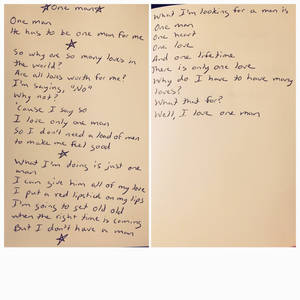 ☆One man☆
One man
He has to be one man for me
☆
So why are so many loves in
the world?
Are all loves worth for me?
I'm saying, "No"
Why not?
'cause I say so
I love only one man
So I don't need a load of men
to make me feel good
☆
What I'm doing is just one
man
I can give him all of my love
I put a red lipstick on my lips
I'm going to get old old
when the right time is coming
But I don't have a man
☆
What I'm looking for a man is
One man
One heart
One love
And one lifetime
There is only one love
Why do I have to have many
loves?
What that for?
Well, I love one man